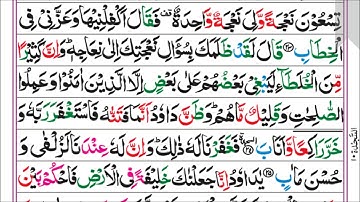 تِسْعُوْنَ نَعْجَةً وَّلِیَ نَعْجَةٌ وَّاحِدَةٌ فَقَالَ اَكْفِلْنِیْهَا وَعَزَّنِیْ فِی
الْخِطَابِ ﴿۲۳﴾ قَالَ لَقَدْ ظَلَمَكَ بِسُؤَالِ نَعْجَتِكَ اِلٰی نِعَاجِهٖ ؕ وَاِنَّ كَثِیْرًا
مِّنَ الْخُلَطَآءِ لَیَبْغِیْ بَعْضُهُمْ عَلٰی بَعْضٍ اِلَّا الَّذِیْنَ اٰمَنُوْا وَعَمِلُوا
الصّٰلِحٰتِ وَقَلِیْلٌ مَّا هُمْ ؕ وَظَنَّ دَاوٗدُ اَنَّمَا فَتَنّٰهُ فَاسْتَغْفَرَ رَبَّهٗ وَ
خَرَّ رَاكِعًا وَّاَنَابَ ﴿۲۴﴾ فَغَفَرْنَا لَهٗ ذٰلِكَ ؕ وَاِنَّ لَهٗ عِنْدَنَا لَزُلْفٰی وَ
حُسْنَ مَاٰبٍ ﴿۲۵﴾ یٰدَاوٗدُ اِنَّا جَعَلْنٰكَ خَلِیْفَةً فِی الْاَرْضِ فَاحْكُمْ بَیْنَ
السجدة ١٠